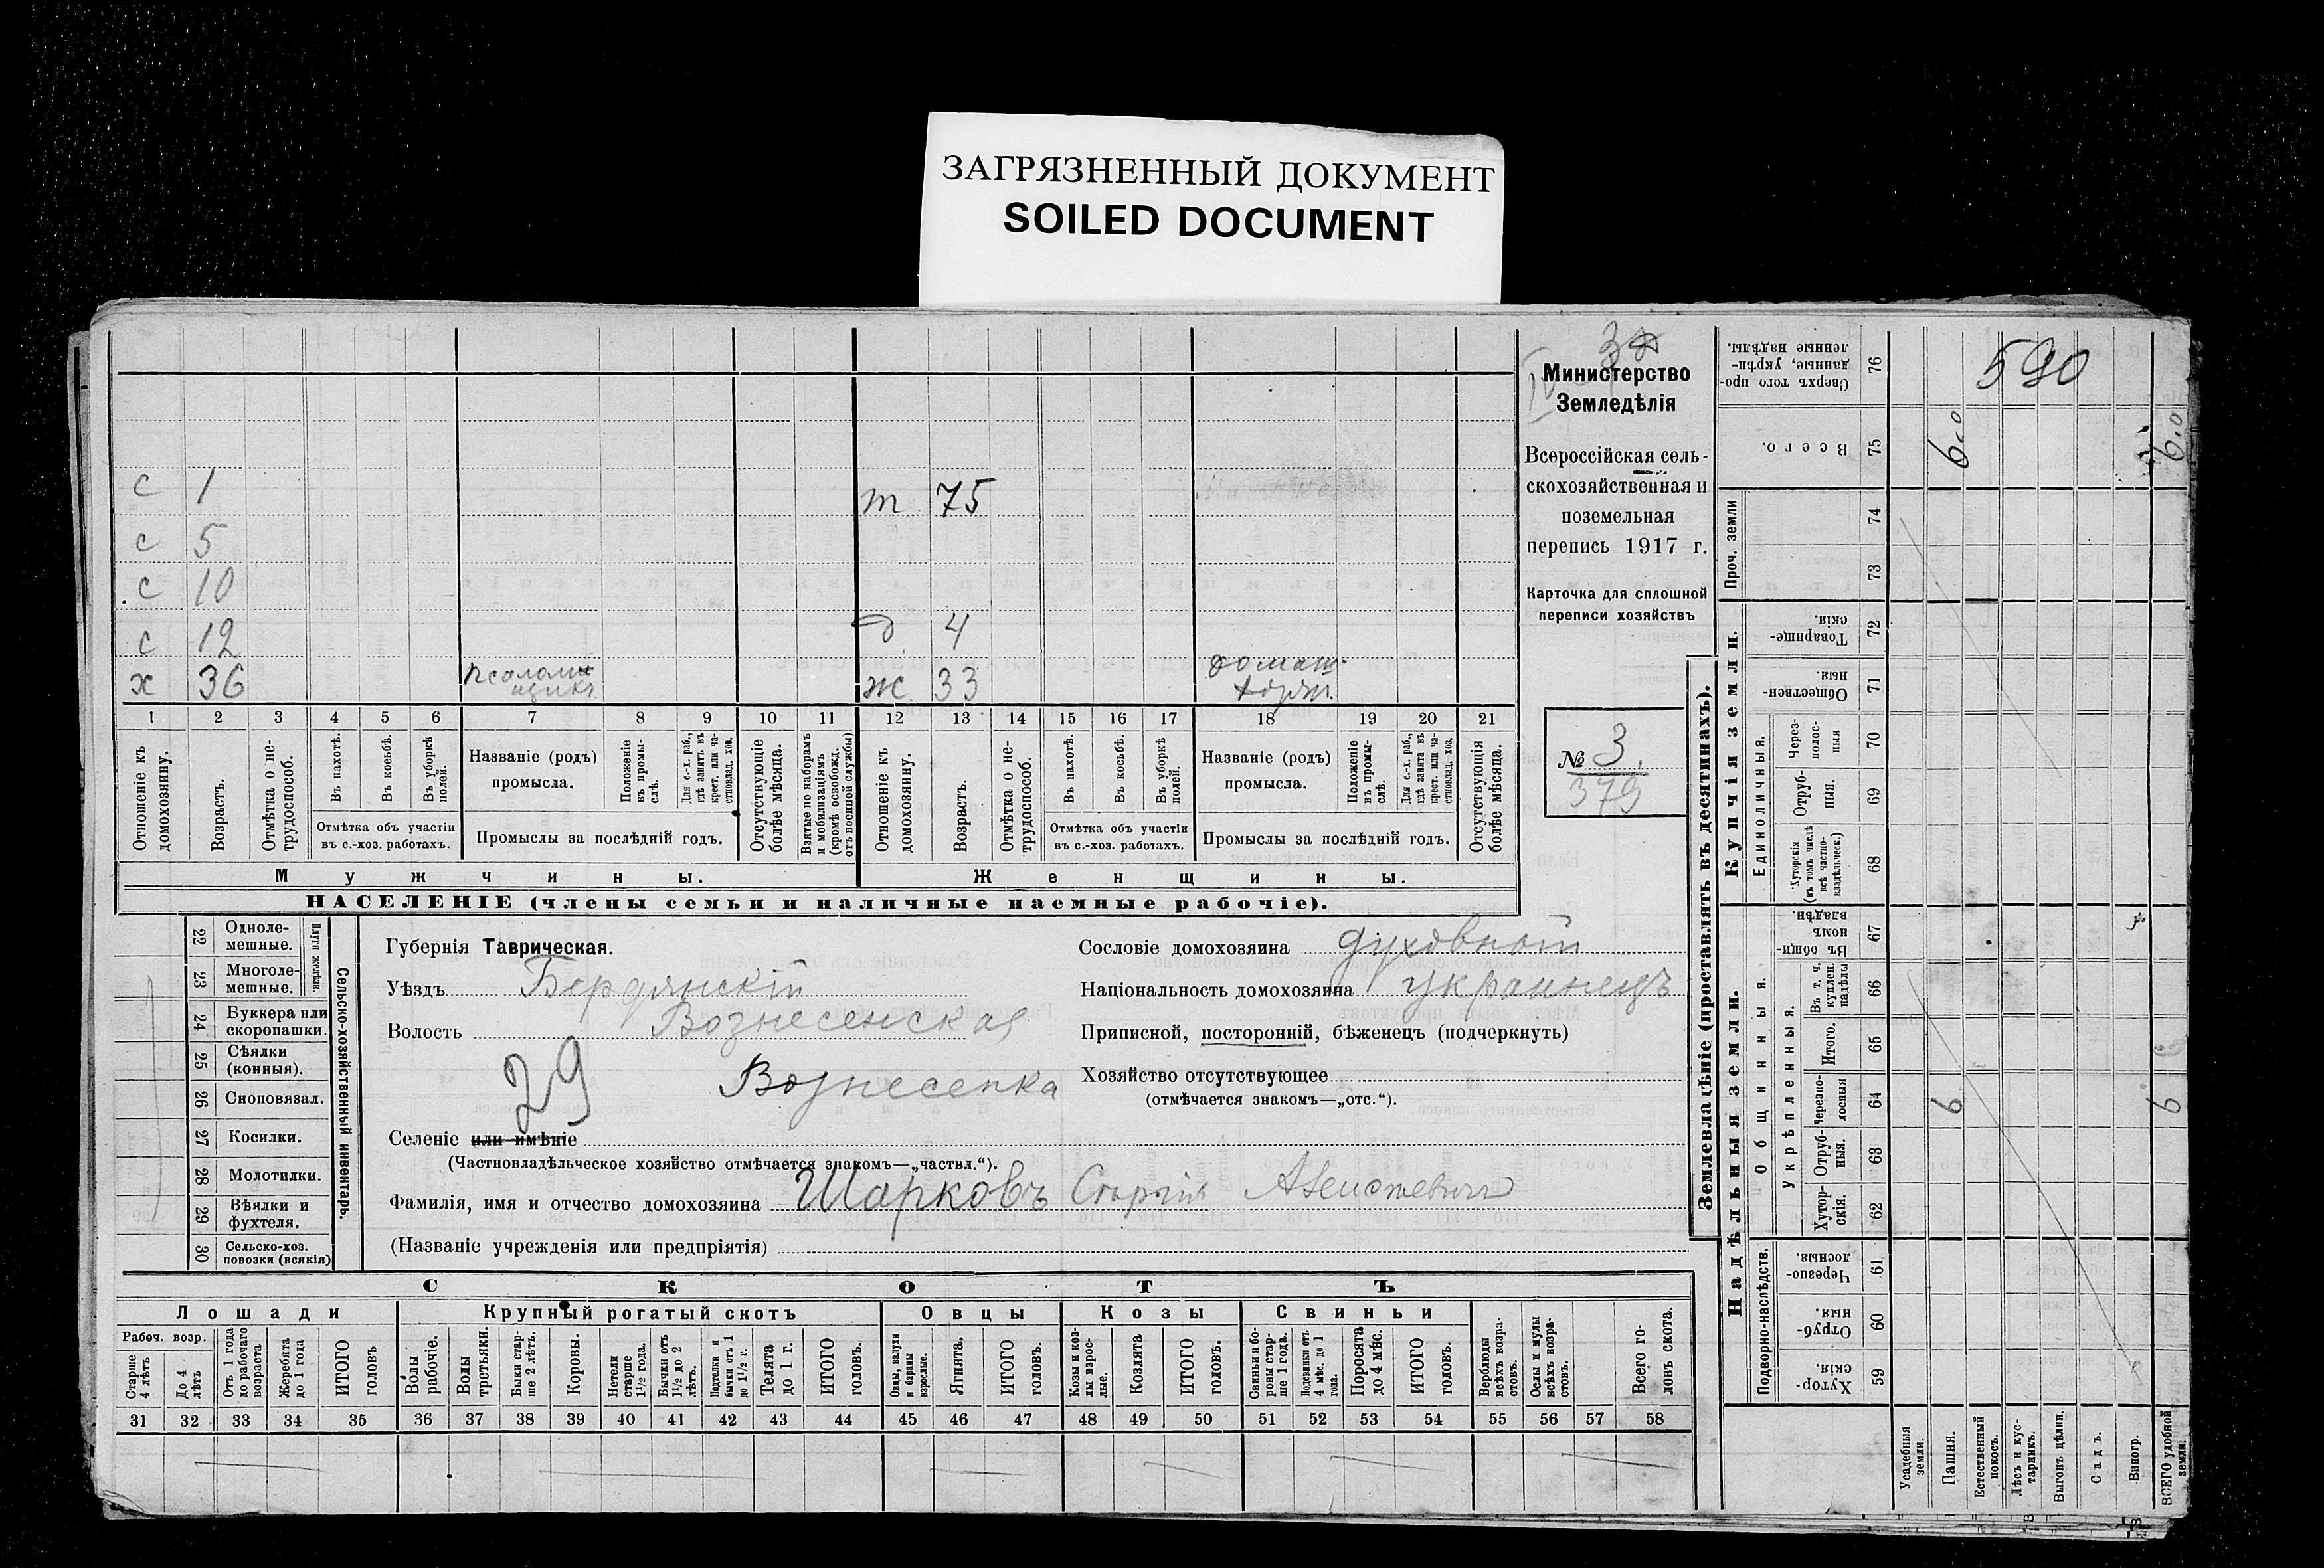 ЗАГРЯЗНЕННЫЙ ДОКУМЕНТ
SOILED DOCUMENT
Министерство
Земледѣлія
Всероссійская сель-
скохозяйственная и
поземельная
перепись 1917 г.
Карточка для сплошной
переписи хозяйствъ
№ 3.
379
590
с 1
m 75
с 5
с 10
с 12
д 4
х 36
ж 33
1 2 3 4 5 6 7 8 9 10 11 12 13 14 15 16 17 18 19 20 21
Отношеніе къ домохозяину.
Возрастъ.
Отмѣтка о не-трудоспособ.
Въ пахотѣ.
Въ косьбѣ.
Въ уборкѣ полей.
Отмѣтка объ участіи
въ с.-хоз. работахъ.
Названіе (родъ)
промысла.
Положеніе въ промы-слѣ.
Для с.-х. раб., гдѣ занятъ въ крест. или ча-стновлад. хоз.
Промыслы за послѣдній годъ.
Отсутствующіе болѣе мѣсяца.
Взятые по наборамъ и мобилизаціямъ (кромѣ освобожд. отъ военной службы)
Отношеніе къ домохозяину.
Возрастъ.
Отмѣтка о не-трудоспособ.
Въ пахотѣ.
Въ косьбѣ.
Въ уборкѣ полей.
Отмѣтка объ участіи
въ с.-хоз. работахъ.
Названіе (родъ)
промысла.
Положеніе въ промы-слѣ.
Для с.-х. раб., гдѣ занята въ крест. или ча-стновлад. хоз.
Промыслы за послѣдній годъ.
Отсутствующія болѣе мѣсяца.
Мужчины.
Женщины.
НАСЕЛЕНІЕ (члены семьи и наличные наемные рабочіе).
22 Одноле-мешные.
23 Многоле-мешные.
Плуги желѣзн.
24 Буккера или скоропашки.
25 Сѣялки (конныя).
26 Сноповязал.
27 Косилки.
28 Молотилки.
29 Вѣялки и фухтеля.
30 Сельско-хоз. повозки (всякія)
Сельско-хозяйственный инвентарь.
Губернія Таврическая.
Уѣздъ Бердянскій
Волость Вознесенская
29 Вознесенка
Селеніе или имѣніе
(Частновладѣльческое хозяйство отмѣчается знакомъ—„частвл.“).
Фамилія, имя и отчество домохозяина Шарковъ
(Названіе учрежденія или предпріятія)
Сословіе домохозяина духовный
Національность домохозяина украинецъ
Приписной, посторонній, бѣженецъ (подчеркнуть)
Хозяйство отсутствующее
(отмѣчается знакомъ—„отс.“).
СКОТЪ
Лошади
Крупный рогатый скотъ
Овцы
Козы
Свиньи
Рабоч. возр.
Старше 4 лѣтъ
До 4 лѣтъ
Отъ 1 года до рабочаго возраста
Жеребята до 1 года
ИТОГО головъ
Волы рабочіе.
Волы третьяки.
Быки стар-ше 2 лѣтъ.
Коровы.
Нетели старше 1½ года.
Бычки отъ 1½ до 2 лѣтъ.
Подтелки и бычки отъ 1 до 1½ г.
Телята до 1 г.
ИТОГО головъ.
Овцы, валухи и бараны взрослые.
Ягнята.
ИТОГО головъ.
Козы и коз-лы взрос-лые.
Козлята
ИТОГО головъ.
Свиньи и бо-ровы стар-ше 1 года.
Подсвинки отъ 4 мѣс. до 1 года.
Поросята до 4 мѣс.
ИТОГО головъ.
Верблюды всѣхъ возра-стовъ.
Ослы и мулы всѣхъ возра-стовъ.
Всего го-ловъ скота.
31 32 33 34 35 36 37 38 39 40 41 42 43 44 45 46 47 48 49 50 51 52 53 54 55 56 57 58
Землевладѣніе (проставлять въ десятинахъ).
Купчія земли.
Надѣльныя земли.
Сверхъ того про-данные, укрѣп-ленные надѣлы. 76
Всего. 75 6.0 6.0
Проч. земли
74
73
Товарище-скія. 72
Обществен-ныя. 71
Единоличныя.
Через-полос-ныя 70
Отруб-ныя. 69
Хуторскія (въ томъ числѣ всѣ частно-владѣльческ.) 68
Общинныя.
Въ общин-номъ владѣн. 67
Укрѣпленныя.
Въ т. ч. куплен. надѣлы 66
Итого. 65
Черезпо-лосныя 64 6 6
Отруб-ныя. 63
Хутор-скія. 62
Подворно-наслѣдств.
Черезпо-лосныя. 61
Отруб-ныя. 60
Хутор-скія. 59
Усадебныя земли.
Пашня.
Естественный покосъ.
Лѣсъ и кус-тарникъ.
Выгонъ цѣлин.
Садъ.
Виногр.
ВСЕГО удобной земли.